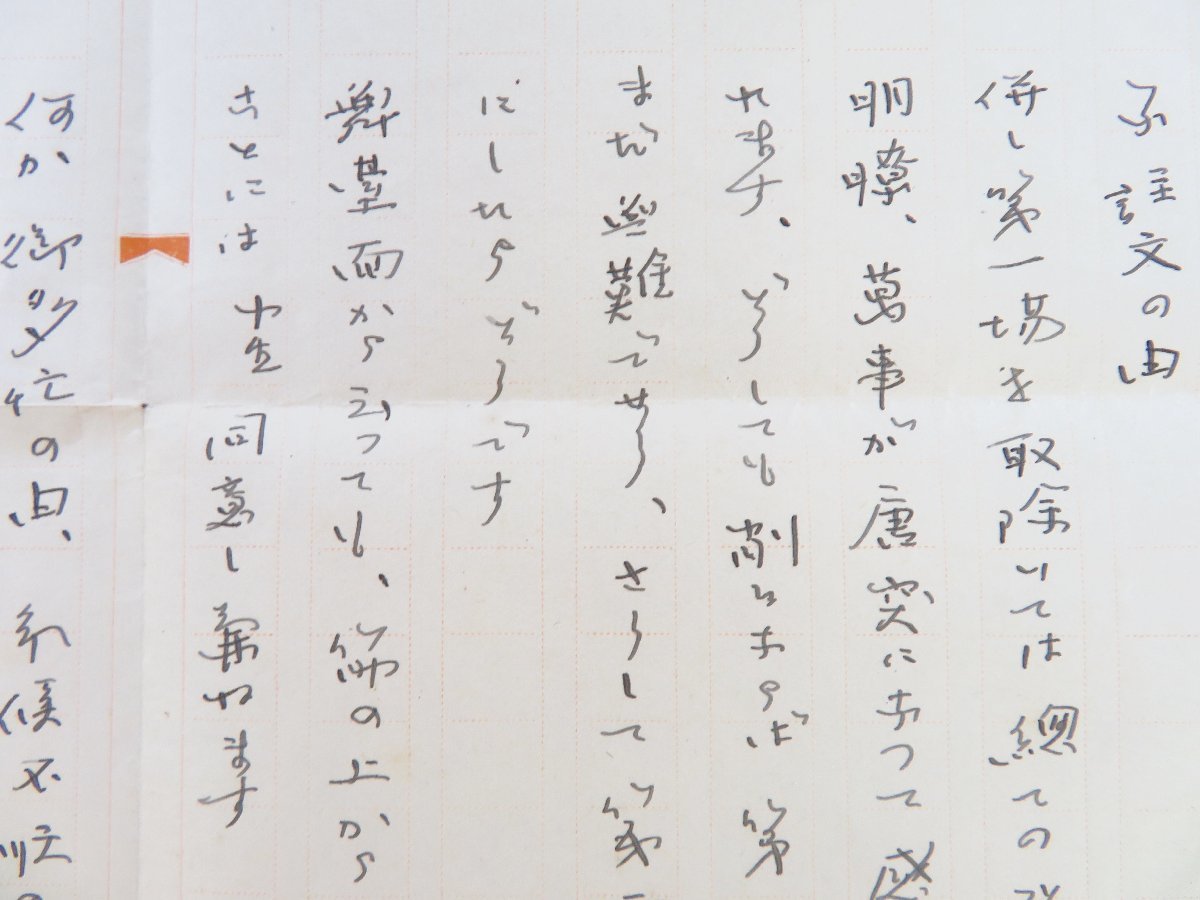 ふ註文の由
併し第一場を取除いては總ての
明瞭、萬事が唐突になつて感
れます、どうしても削るならば第
まだ無難でせう、さうして第二
にしたらどうです
舞臺面から云つても、筋の上から
ことには 小生 同意し兼ねます
何か御多忙の由、氣候不順の